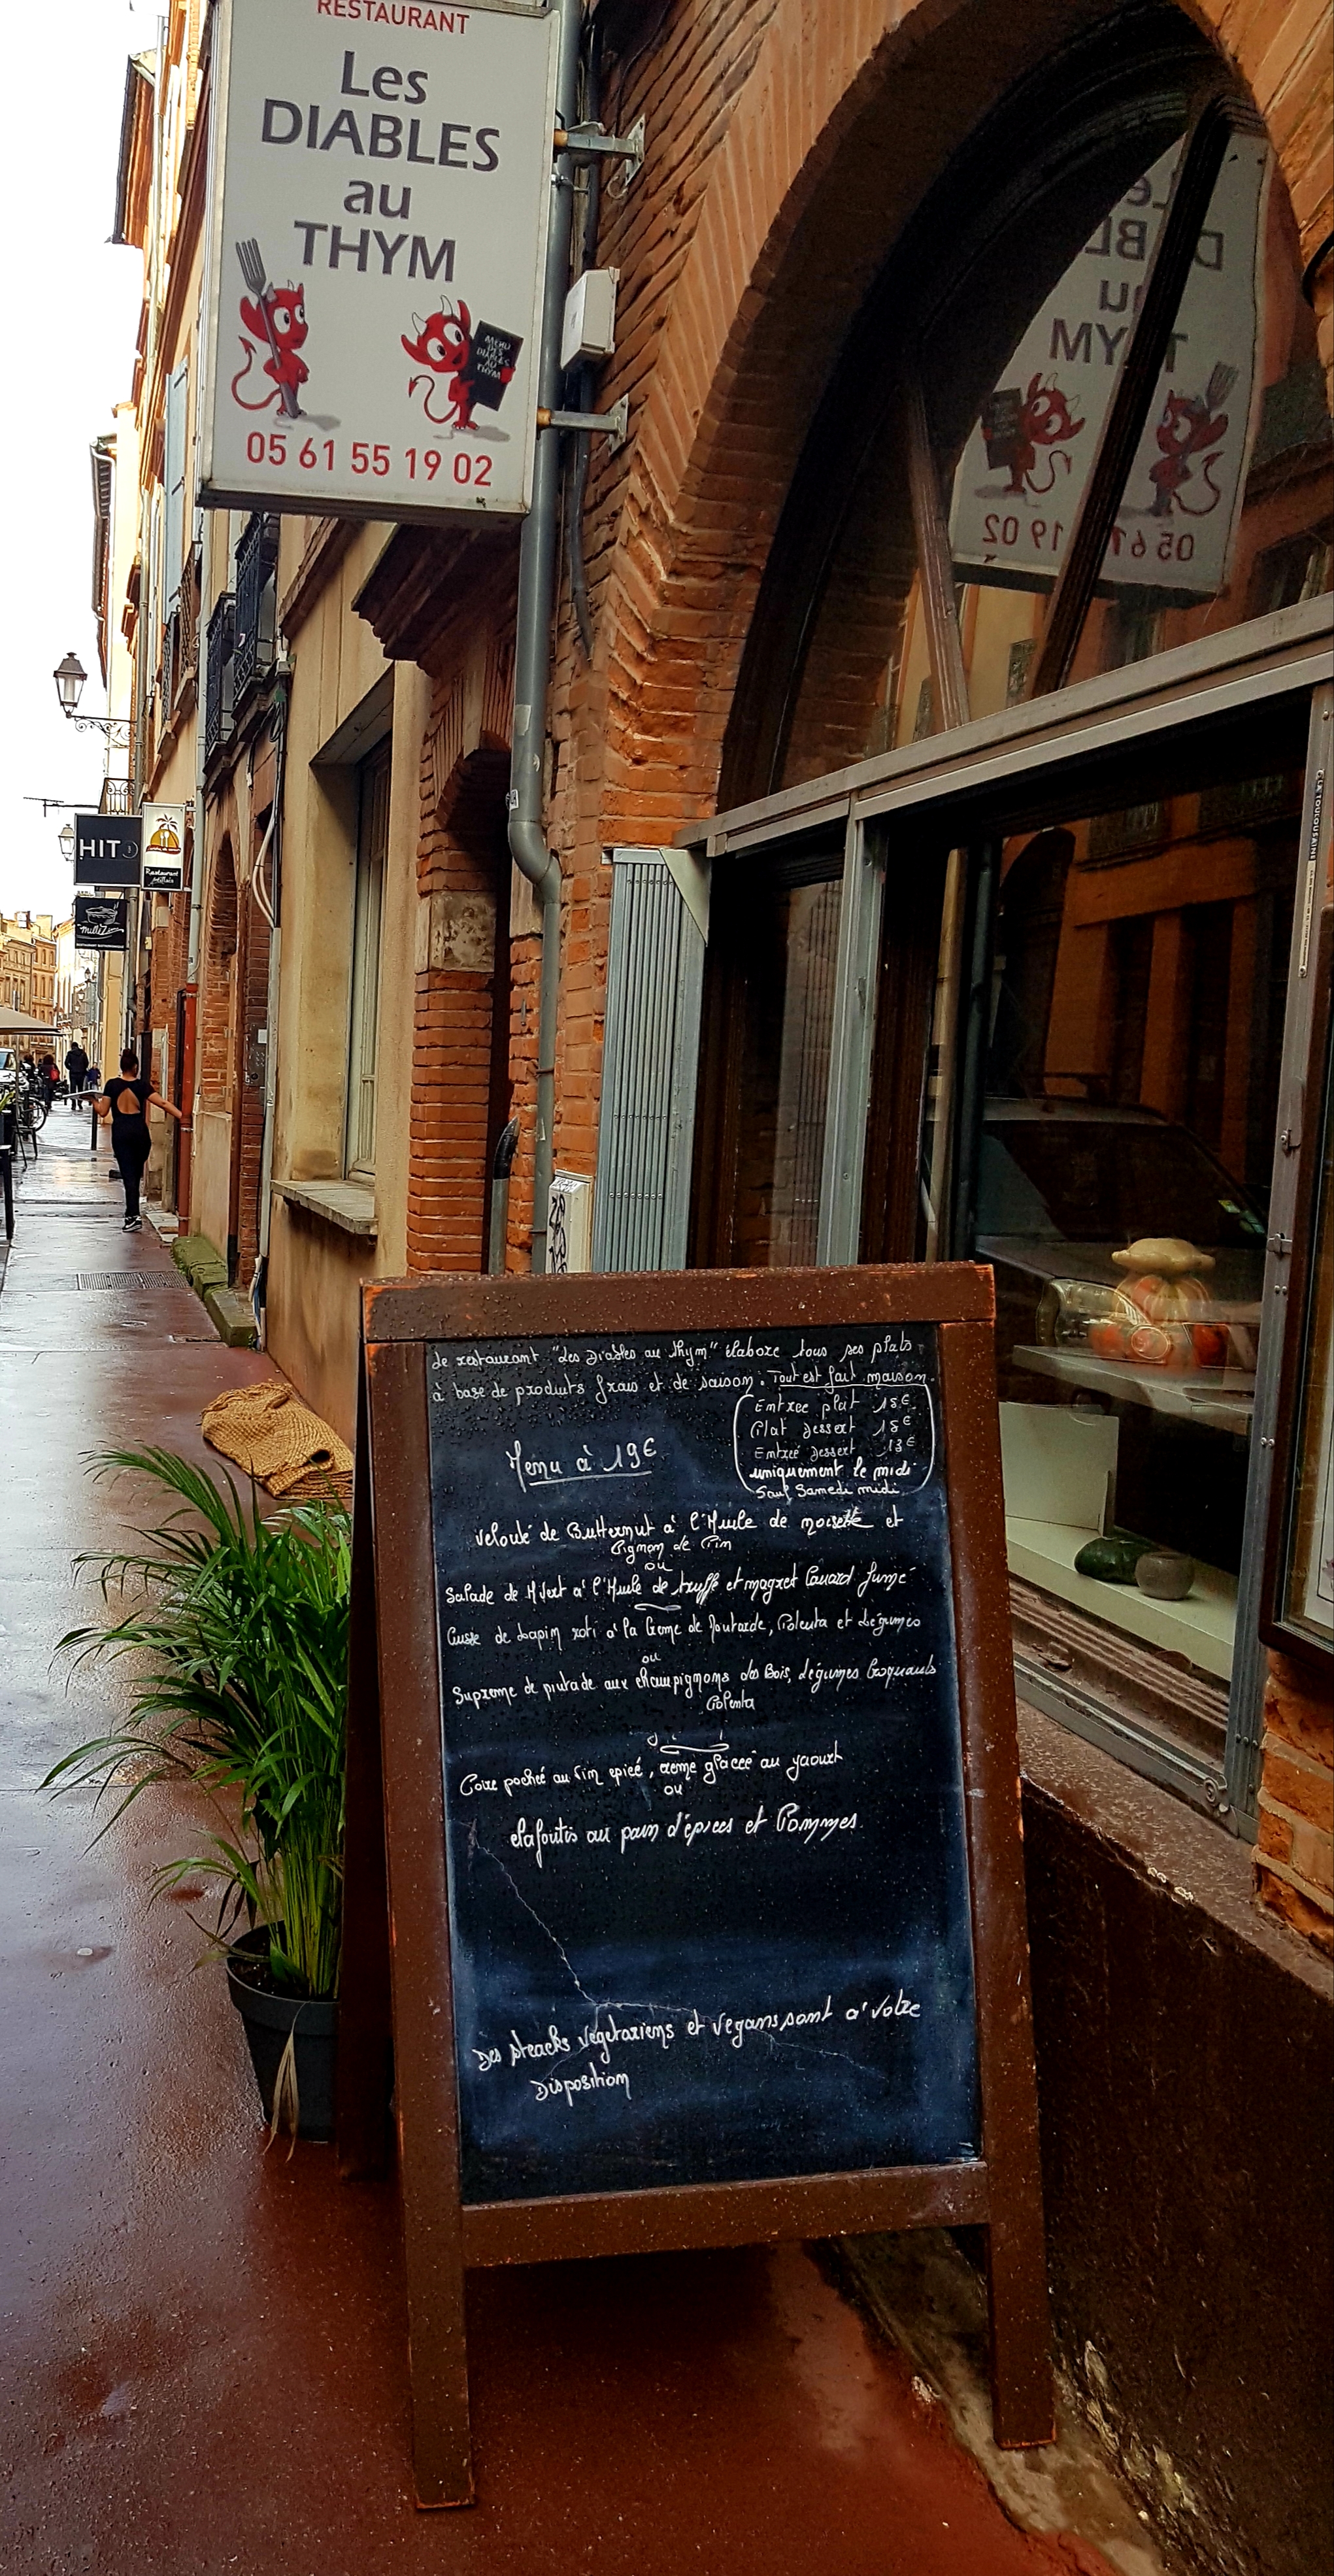 RESTAURANT
Les
DIABLES
au
THYM
MENU
LES
DIABLES
AU
THYM
05 61 55 19 02
HIT
Restaurant
antillais
Le restaurant "Les Diables au thym" élabore tous ses plats
à base de produits frais et de saison. Tout est fait maison.
Entrée plat 15€
Plat dessert 15€
Entrée dessert 13€
uniquement le midi
Sauf Samedi midi
Menu à 19€
Velouté de Butternut à l'Huile de noisette et
Pignon de Pin
ou
Salade de Hivert à l'Huile de truffe et magret Canard fumé
Cuisse de Lapin roti à la Creme de Moutarde, Polenta et Légumes
ou
Supreme de pintade aux champignons des Bois, Légumes Croquants
Polenta
Poire pochée au Vin epicé, creme glacée au yaourt
ou
Clafoutis au pain d'épices et Pommes.
Des steacks végétariens et Vegans sont a' Votre
Disposition